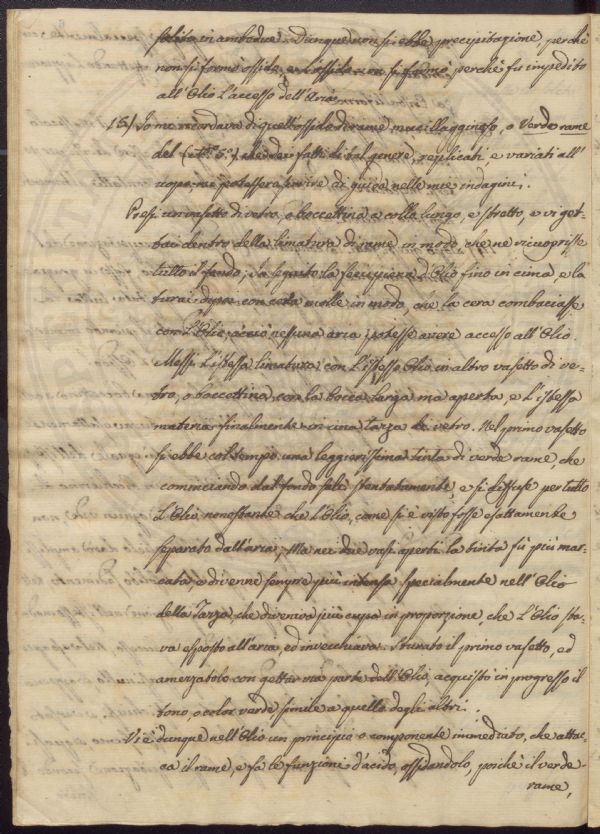 solito in ambodue. Dunque non si ebbe precipitazione, perchè
non si formò ossido, e l'ossido non si formò, perchè fu impedito
all'Olio l'accesso dell'Aria.
15) Io mi ricordava di quell'ossido di rame mucillagginoso, o Verderame
del che dei fatti di tal genere, replicati, e variati all'
uopo, me potessero servire di guida nelle mie indagini.
Presi un vasetto di vetro, o boccettina a collo lungo, e stretto, e vi get-
tai dentro della limatura di rame in modo, che ne ricuoprisse
tutto il fondo; in seguito la feci piena d'Olio fino in cima, e la
turai dopo con cera molle in modo, che la cera combaciasse
con l'Olio, acciò nessuna aria potesse avere accesso all'Olio.
Messi l'istessa limatura con l'istesso Olio in altro vasetto di ve-
tro, o boccettina con la bocca larga ma aperta, e l'istessa
materia finalmente in una tazza di vetro. Nel primo vasetto
si ebbe col tempo una leggierissima tinta di verde rame, che
cominciando dal fondo salì stentatamente, e si diffuse per tutto
l'Olio, nonostante che l'Olio, come si è visto fosse esattamente
separato dall'aria; Ma nei due vasi aperti la tinta fù più mar-
cata, e divenne sempre più intensa specialmente nell'Olio
della Tazza, che diveniva più cupa in proporzione, che l'Olio sta-
va esposto all'aria, ed invecchiava. Sturato il primo vasetto, ed
amezzatolo con gettar via parte dell'Olio, acquistò in progresso il
tono, o color verde simile a quello degli altri.
Vi è dunque nell'Olio un principio o componente immediato, che attac-
ca il rame, e fa le funzioni d'acido, ossidandolo, poichè il verde-
rame,